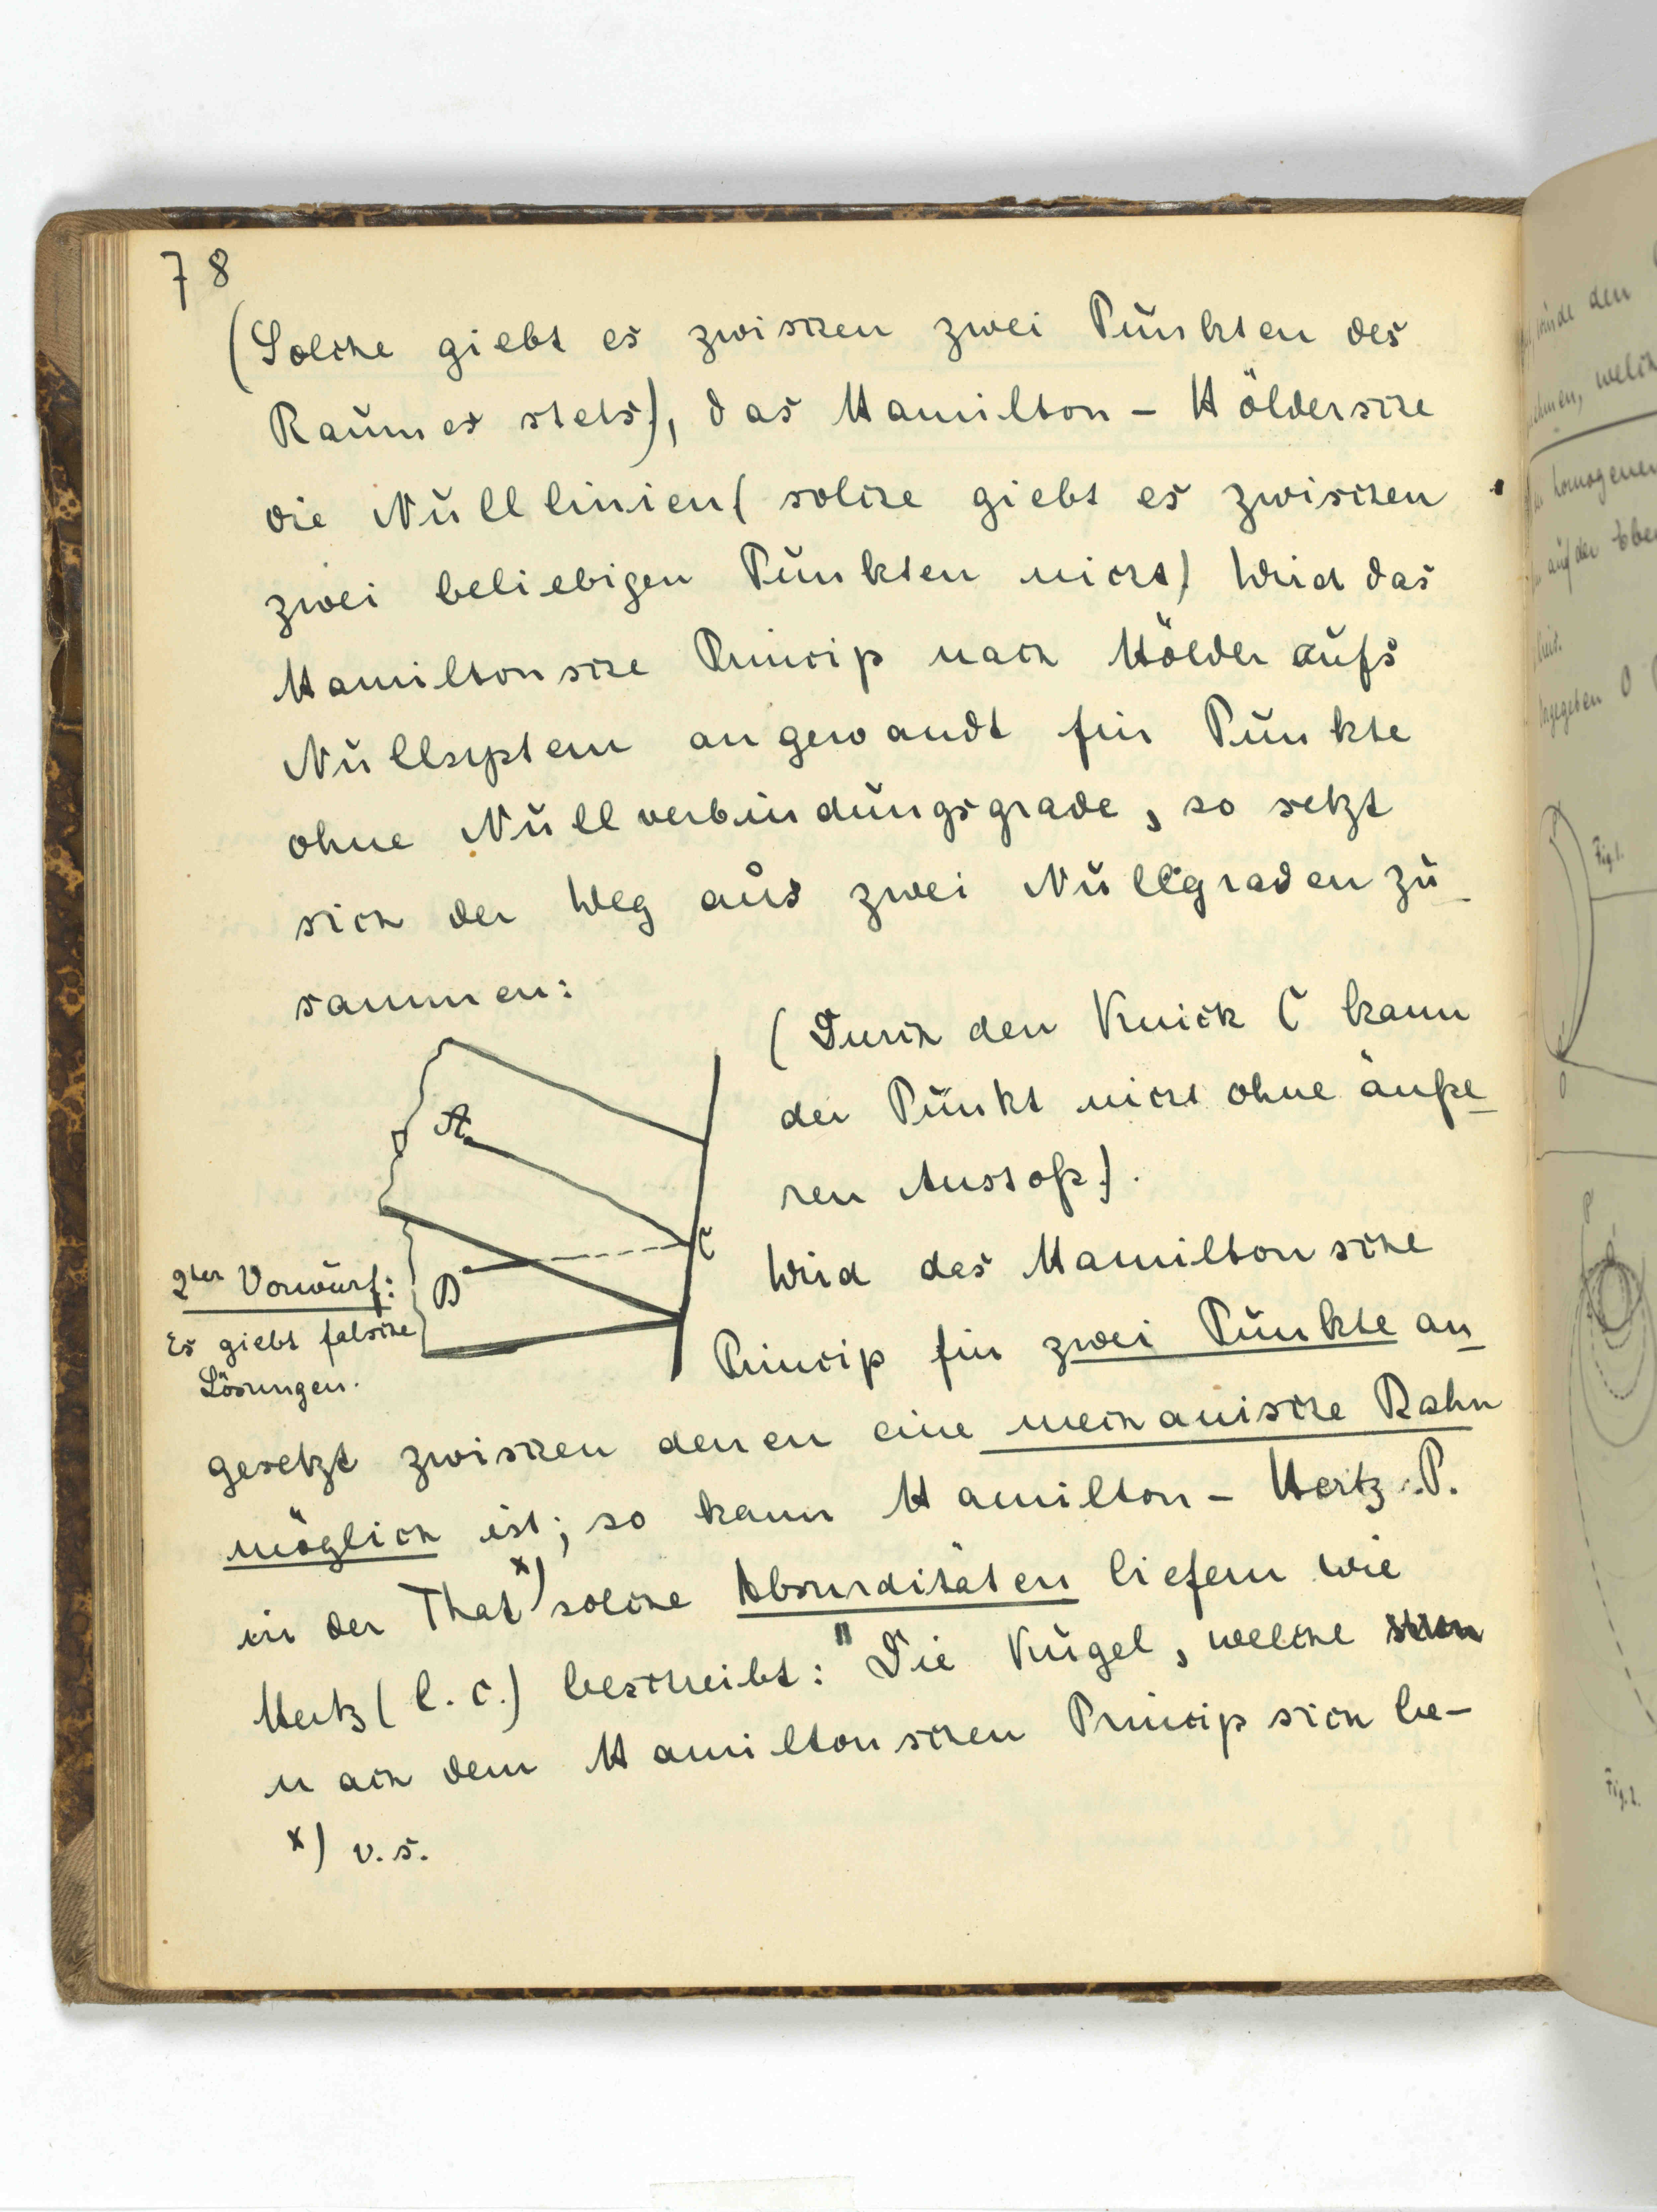 78
(Solche giebt es zwischen zwei Punkten des
Raumes stets), das Hamilton - Höldersche
die Nulllinien (solche giebt es zwischen
zwei beliebigen Punkten nicht) Wird das
Hamiltonsche Princip nach Hölder aufs
Nullsystem angewandt für Punkte
ohne Nullverbindungsgrade, so setzt
sich der Weg aus zwei Nullgraden zu-
sammen:
(Durch den Knick C kann
der Punkt nicht ohne äuße-
ren Anstoß).
A
C
B
2ter Vorwurf:
Es giebt falsche
Lösungen.
Wird das Hamiltonsche
Princip für zwei Punkte an-
gesetzt zwischen denen eine mechanische Bahn
möglich ist; so kann Hamilton - Hertz. P.
in der That x) solche Absurditäten liefern wie
Hertz (l. c.) beschreibt: "Die Kugel, welche
nach dem Hamiltonschen Princip sich be-
x) v. s.
wurde den
nehmen, welch
homogenen
auf der Ebe
gegeben O
Fig. 1.
O
P
Fig. 2.